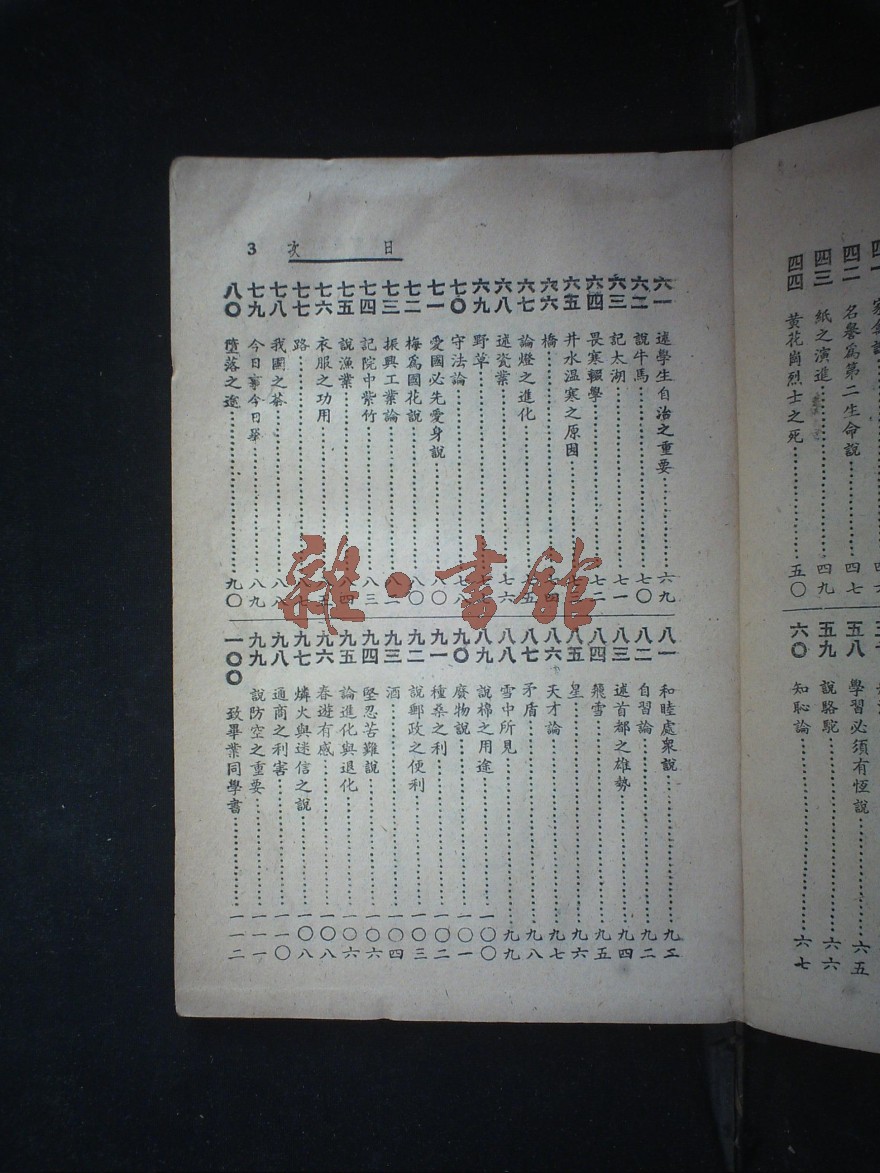 四二 名譽爲第二生命說 四七
四三 紙之演進 四九
四四 黃花崗烈士之死 五〇
五八 學習必須有恆說 六五
五九 說駱駝 六六
六〇 知恥論 六七
目次 3
六一 述學生自治之重要 六九
六二 說牛馬 七〇
六三 記太湖 七一
六四 畏寒輟學 七二
六五 井水溫寒之原因
六六 橋 七四
六七 論燈之進化 七五
六八 述瓷業 七六
六九 野草 七七
七〇 守法論 七八
七一 愛國必先愛身說 八〇
七二 梅爲國花說 八〇
七三 振興工業論 八二
七四 記院中紫竹 八三
七五 說漁業 八四
七六 衣服之功用 八五
七七 路 八七
七八 我國之茶 八八
七九 今日事今日畢 八九
八〇 墮落之途 九〇
八一 和睦處衆說 九二
八二 自習論 九二
八三 述首都之雄勢 九四
八四 飛雪 九五
八五 星 九六
八六 天才論 九七
八七 矛盾 九八
八八 雪中所見 九九
八九 說棉之用途 一〇〇
九〇 廢物說 一〇一
九一 種桑之利 一〇二
九二 說郵政之便利 一〇三
九三 酒 一〇四
九四 堅忍苦難說 一〇六
九五 論進化與退化 一〇六
九六 春遊有感 一〇八
九七 燐火與迷信之說 一〇八
九八 通商之利害 一一〇
九九 說防空之重要 一一一
一〇〇 致畢業同學書 一一二
雜·書館